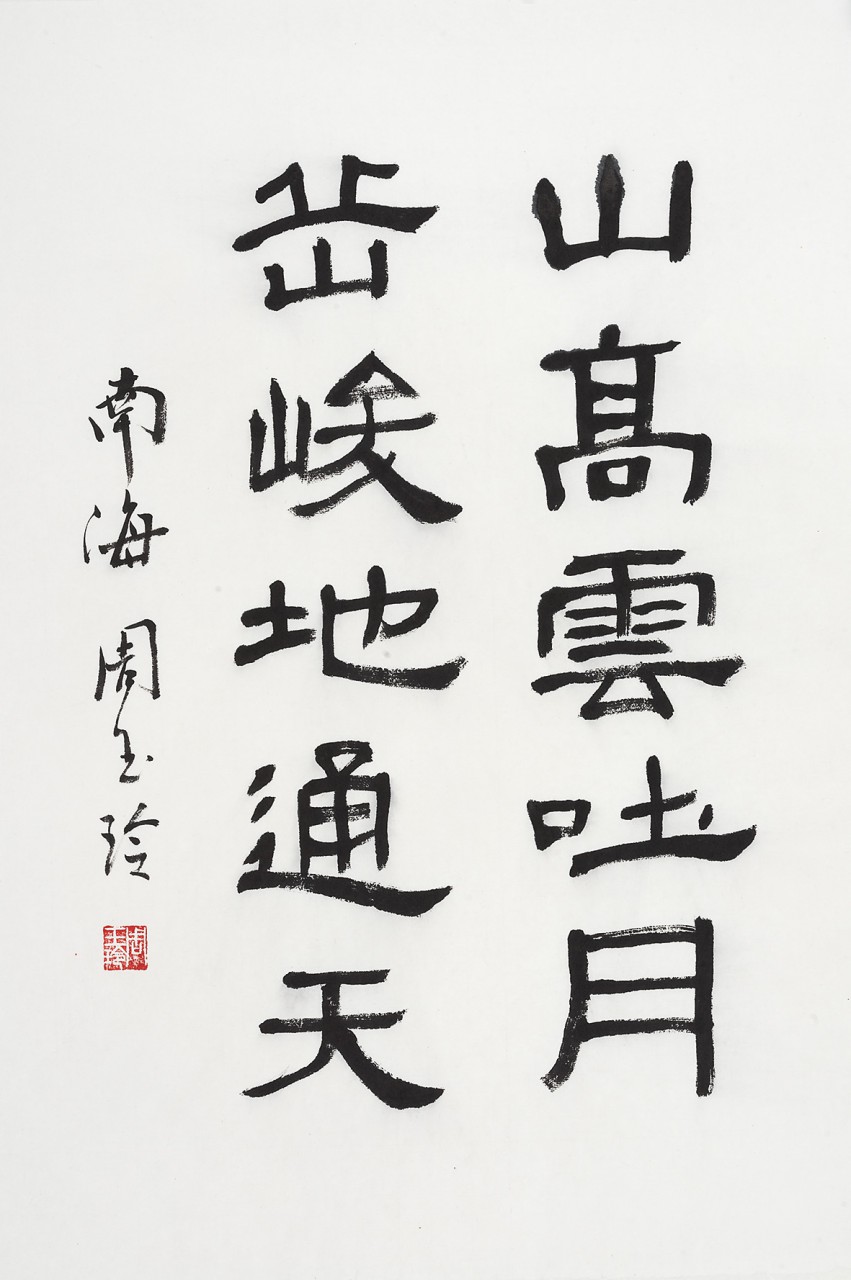 山髙雲吐月
岳峻地通天
南海 周玉玲